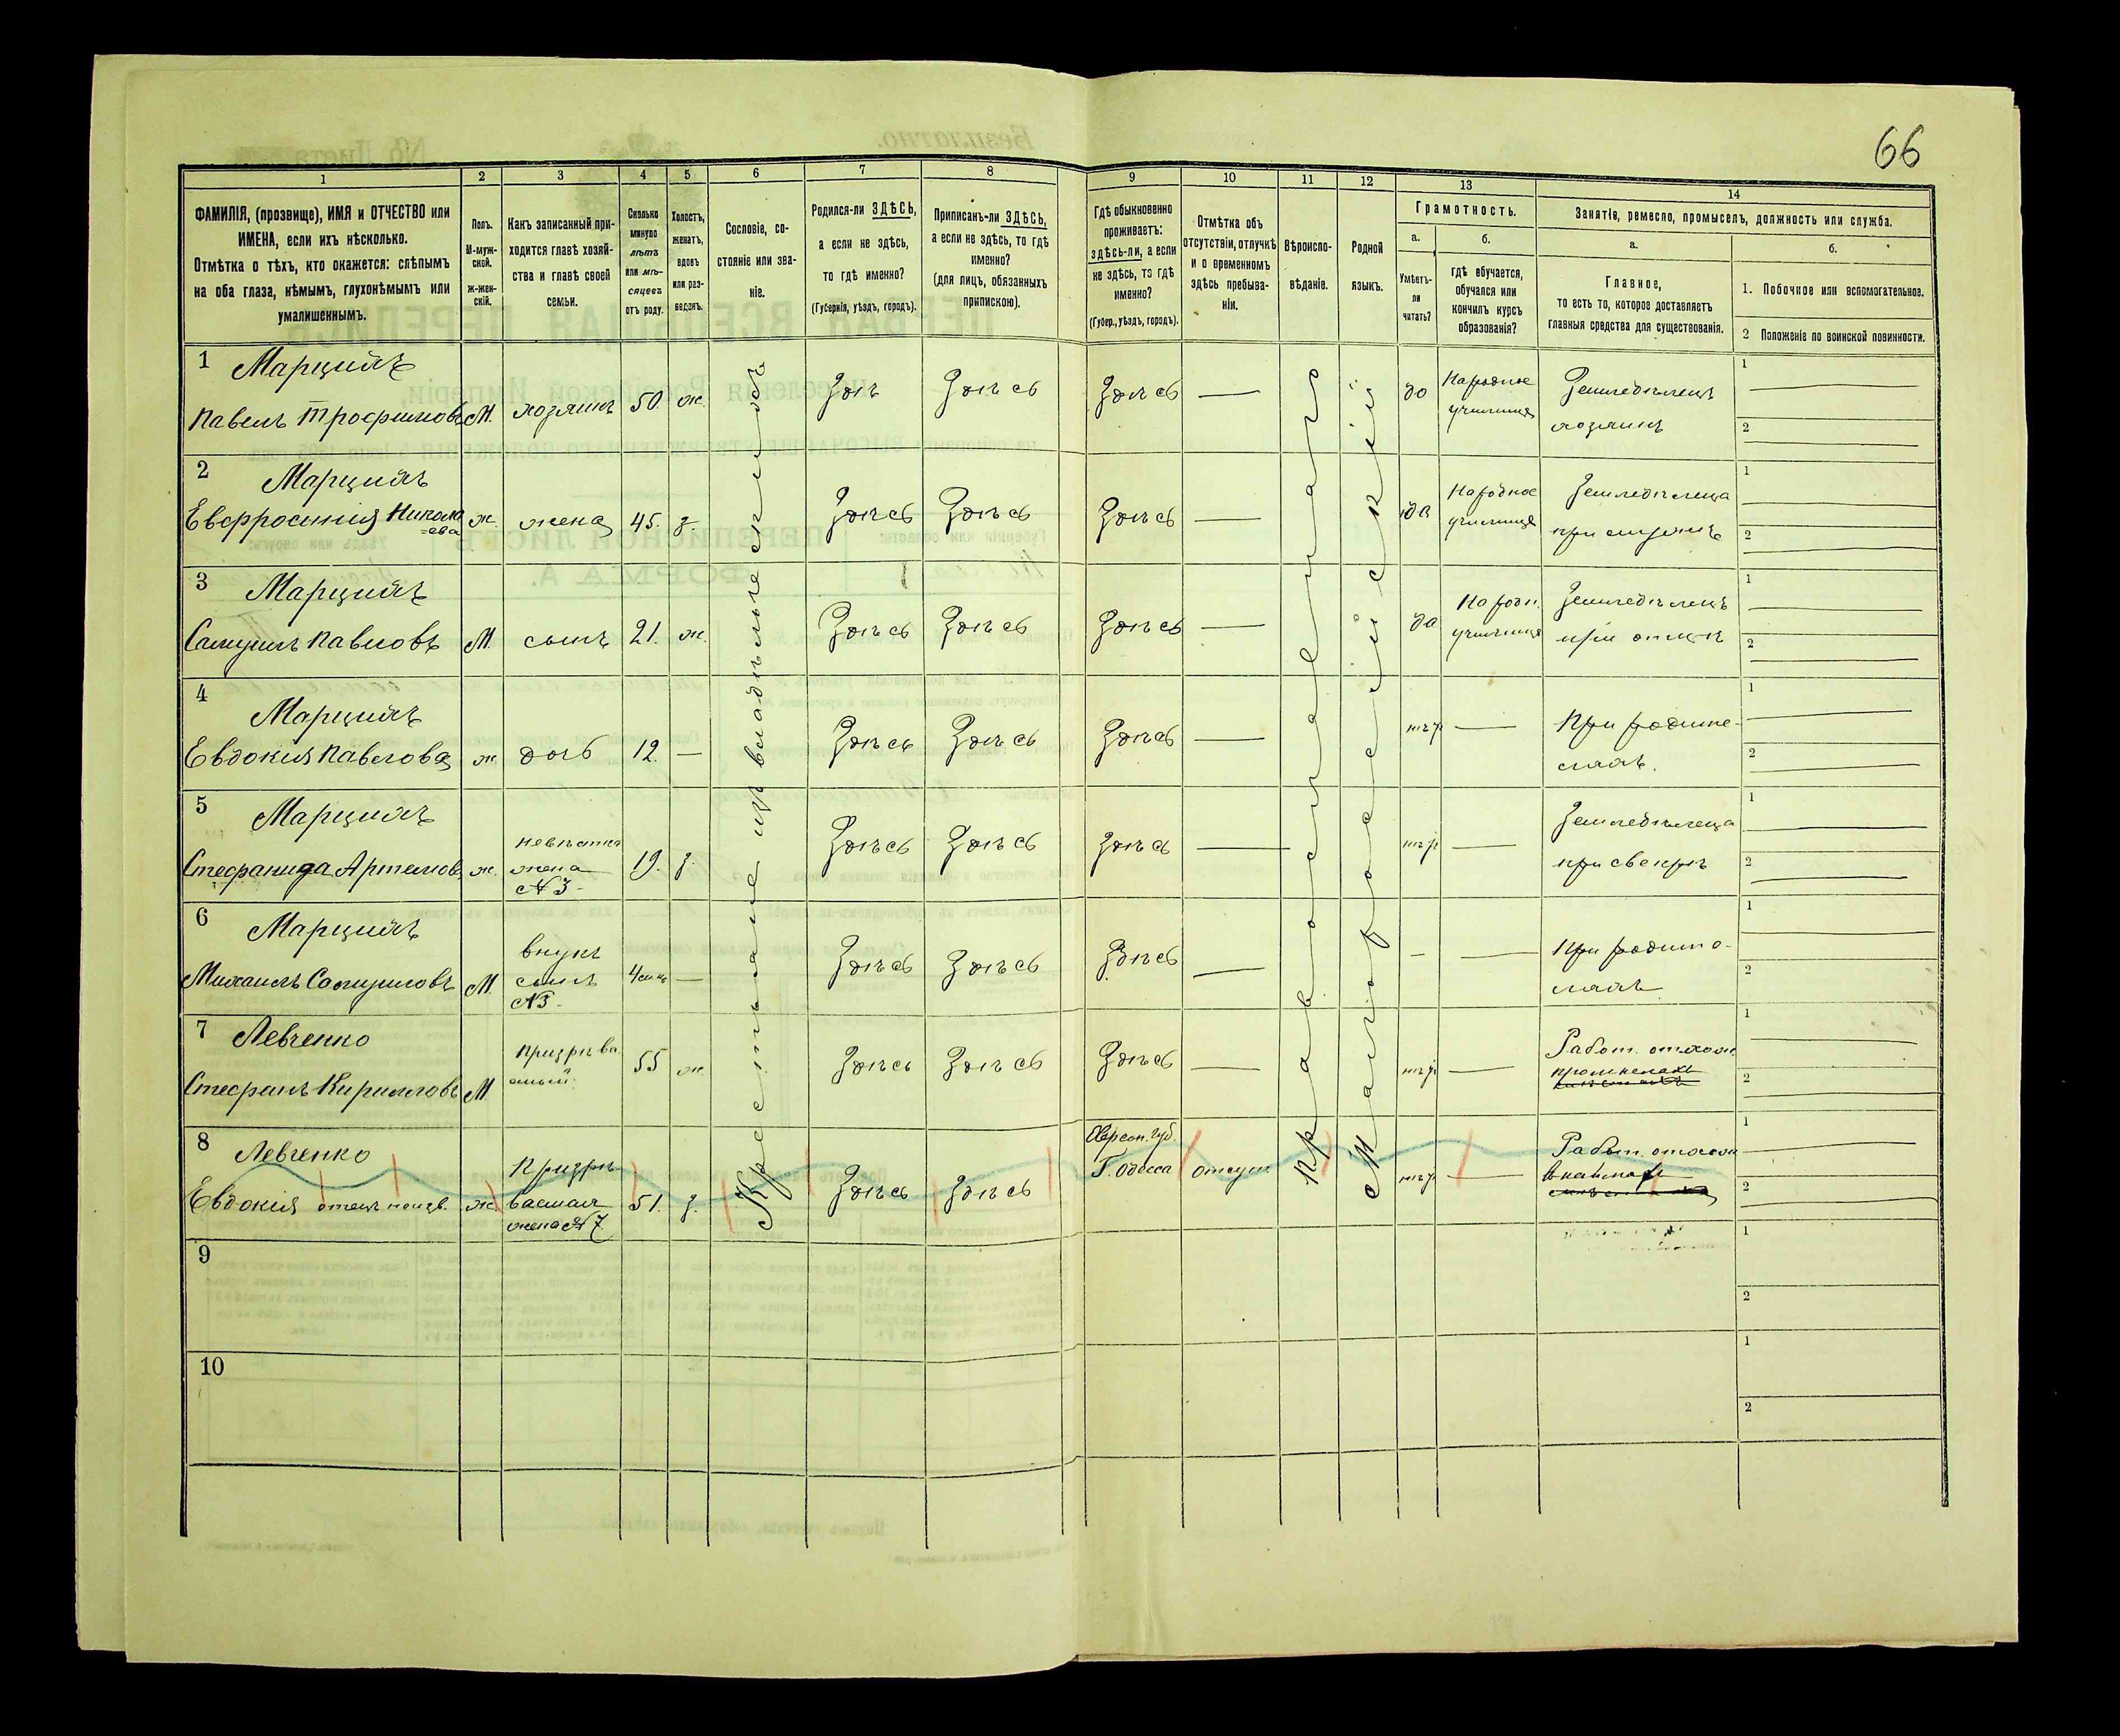 66
1 2 3 4 5 6 7 8 9 10 11 12 13 14
ФАМИЛІЯ, (прозвище), ИМЯ и ОТЧЕСТВО или
ИМЕНА, если ихъ нѣсколько.
Отмѣтка о тѣхъ, кто окажется: слѣпымъ
на оба глаза, нѣмымъ, глухонѣмымъ или
умалишеннымъ.
Полъ.
М-муж-
ской.
ж-жен-
скій.
Какъ записанный при-
ходится главѣ хозяй-
ства и главѣ своей
семьи.
Сколько
минуло
лѣтъ
или мѣ-
сяцевъ
отъ роду.
Холостъ,
женатъ,
вдовъ
или раз-
веденъ.
Сословіе, со-
стояніе или зва-
ніе.
Родился-ли ЗДѢСЬ,
а если не здѣсь,
то гдѣ именно?
(Губернія, уѣздъ, городъ).
Приписанъ-ли ЗДѢСЬ,
а если не здѣсь, то гдѣ
именно?
(для лицъ, обязанныхъ
припискою).
Гдѣ обыкновенно
проживаетъ:
здѣсь-ли, а если
не здѣсь, то гдѣ
именно?
(Губер., уѣздъ, городъ).
Отмѣтка объ
отсутствіи, отлучкѣ
и о временномъ
здѣсь пребыва-
ніи.
Вѣроиспо-
вѣданіе.
Родной
языкъ.
Грамотность.
а.
Умѣетъ-
ли
читать?
б.
гдѣ обучается,
обучался или
кончилъ курсъ
образованія?
Занятіе, ремесло, промыселъ, должность или служба.
а.
Главное,
то есть то, которое доставляетъ
главныя средства для существованія.
б.
1. Побочное или вспомогательное.
2 Положеніе по воинской повинности.
Крестьяне изъ владѣльческихъ
Православнаго
Малороссійскій
1 Марцинъ
Павелъ Трофимовъ М. хозяинъ 50. ж. Здѣсь Здѣсь — да Народное
училище Земледѣлецъ
хозяинъ 1 2
2 Марцинъ
Евфросинія Никола
=ева ж. жена 45. з. Здѣсь Здѣсь Здѣсь — да Народное
училище Земледѣлица
при мужѣ 1 2
3 Марцинъ
Самуилъ Павловъ М. сынъ 21. ж. Здѣсь Здѣсь Здѣсь — да Народн.
училище Земледѣлецъ
при отцѣ 1 2
4 Марцинъ
Евдокия Павлова ж. дочь 12. — Здѣсь Здѣсь Здѣсь — нѣтъ — При родите-
ляхъ. 1 2
5 Марцинъ
Стефанида Артемов ж. невѣстка
жена
№3. 19. з. Здѣсь Здѣсь Здѣсь — нѣтъ — Земледѣлица
при свекрѣ 1 2
6 Марцинъ
Михаилъ Самуиловъ М. внукъ
сынъ
№3. — Здѣсь Здѣсь Здѣсь — – — При родите-
ляхъ 1 2
7 Левченко
Стефанъ Кирилловъ М призрѣва
емый 55 ж. Здѣсь Здѣсь Здѣсь — нѣтъ — Работ. отхож.
промыслахъ 1 2
8 Левченко
Евдокія отецъ неизв. ж. Призрѣ
ваемая
жена №7 51. з. Здѣсь Здѣсь Херсон. губ.
Г. Одесса отсут. нѣтъ — Работ. отхож 1 2
9 1 2
10 1 2